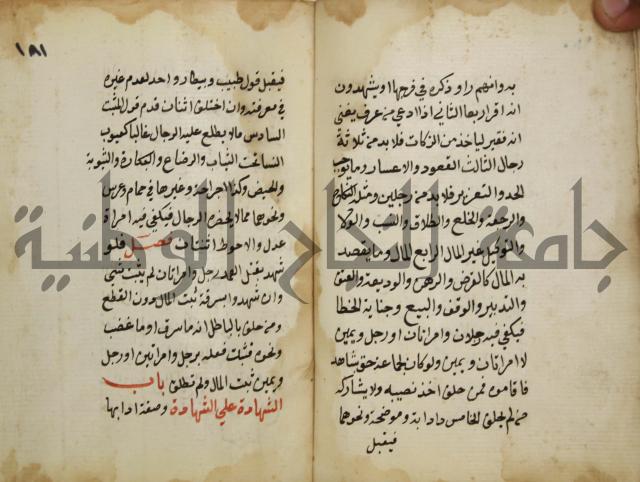 به وانهم راو ذكره في فرجها او يشهدون
انه اقر اربعا الثاني اذا ادعي من عرف بغنى
انه فقير لياخذ من الزكات فلا بد من ثلاثة
رجال الثالث القعود والاعسار وما يوجب
الحد والتعزير فلا بد من رجلين ومثل النكاح
والرجعة والخلع والطلاق والنسب والولا
والتوكيل بغير المال الرابع المال وما يقصد
به المال كالقرض والرهن والوديعة والعتق
والتدبير والوقف والبيع وجناية الخطا
فيكفي فيه رجلان او رجل وامراتان او رجل ويمين
لا امراتان ويمين ولو كان لجماعة حق شاهد
فاقاموه فمن حلف اخذ نصيبه ولا يشاركه
من لم يحلف الخامس داء دابة وموضحة ونحوهما
فيقبل
١٨١
فيقبل قول طبيب وبيطار واحد لعدم غيره
في معرفته وان اختلف اثنان قدم قول المثبت
السادس مالا يطلع عليه الرجال غالبا كعيوب
النسا تحت الثياب والرضاع والبكارة والثيوبة
والحيض وكذا جراحة وغيرها في حمام وعرس
ونحوهما مما لا يحضره الرجال فيكفي فيه امراة
عدل والاحوط اثنتان فصل فلو
شهد بقتل العمد رجل وامراتان لم يثبت شي
وان شهدوا بسرقة ثبت المال دون القطع
ومن حلف بالباطل انه ما سرق او ما غصب
ونحوه فثبت فعله برجل وامراتين او رجل
ويمين ثبت المال ولم تطلق باب
الشهادة علي الشهادة وصفة ادايها
جامعة النجاح الوطنية